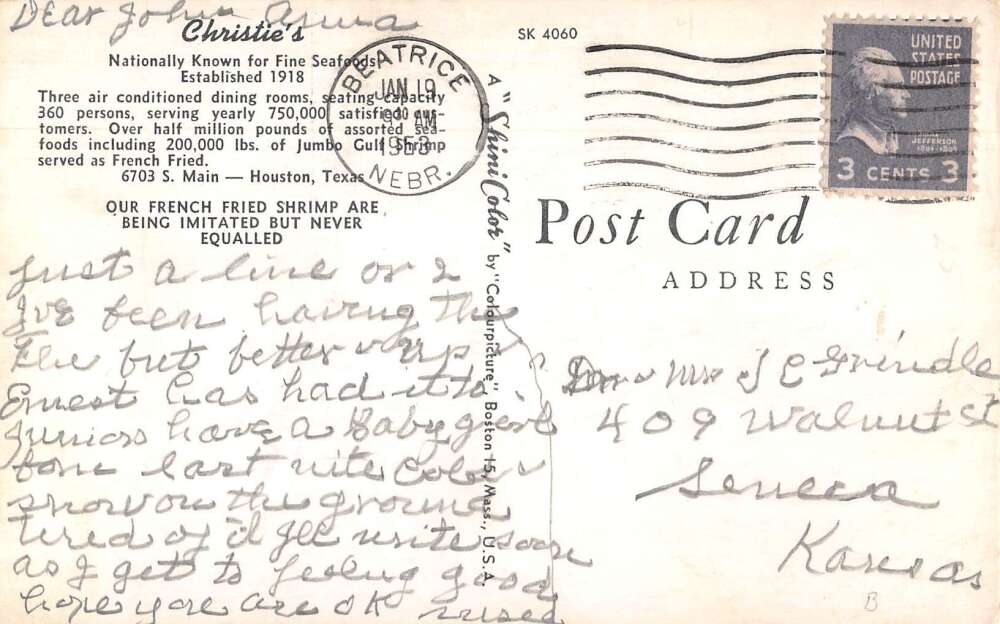 Dear John Anna
Christie's
Nationally Known for Fine Seafoods
Established 1918
Three air conditioned dining rooms, seating capacity
360 persons, serving yearly 750,000 satisfied cus-
tomers. Over half million pounds of assorted sea-
foods including 200,000 lbs. of Jumbo Gulf Shrimp
served as French Fried.
6703 S. Main — Houston, Texas
OUR FRENCH FRIED SHRIMP ARE
BEING IMITATED BUT NEVER
EQUALLED
just a line or 2
I've been having the
Flu but better & up
Ernest has had it to
Juniors have a Baby girl
born last nite Cold &
snow on the ground
tired of it I'll write soon
as I get to feeling good
hope you are OK
SK 4060
A "ShiniColor" by "Colourpicture", Boston 15, Mass., U.S.A.
BEATRICE
JAN 19
9 AM
1963
NEBR.
UNITED
STATES
POSTAGE
JEFFERSON
3 CENTS 3
Post Card
ADDRESS
Mr & Mrs J C Grindle
409 Walnut St
Seneca
Kansas
B